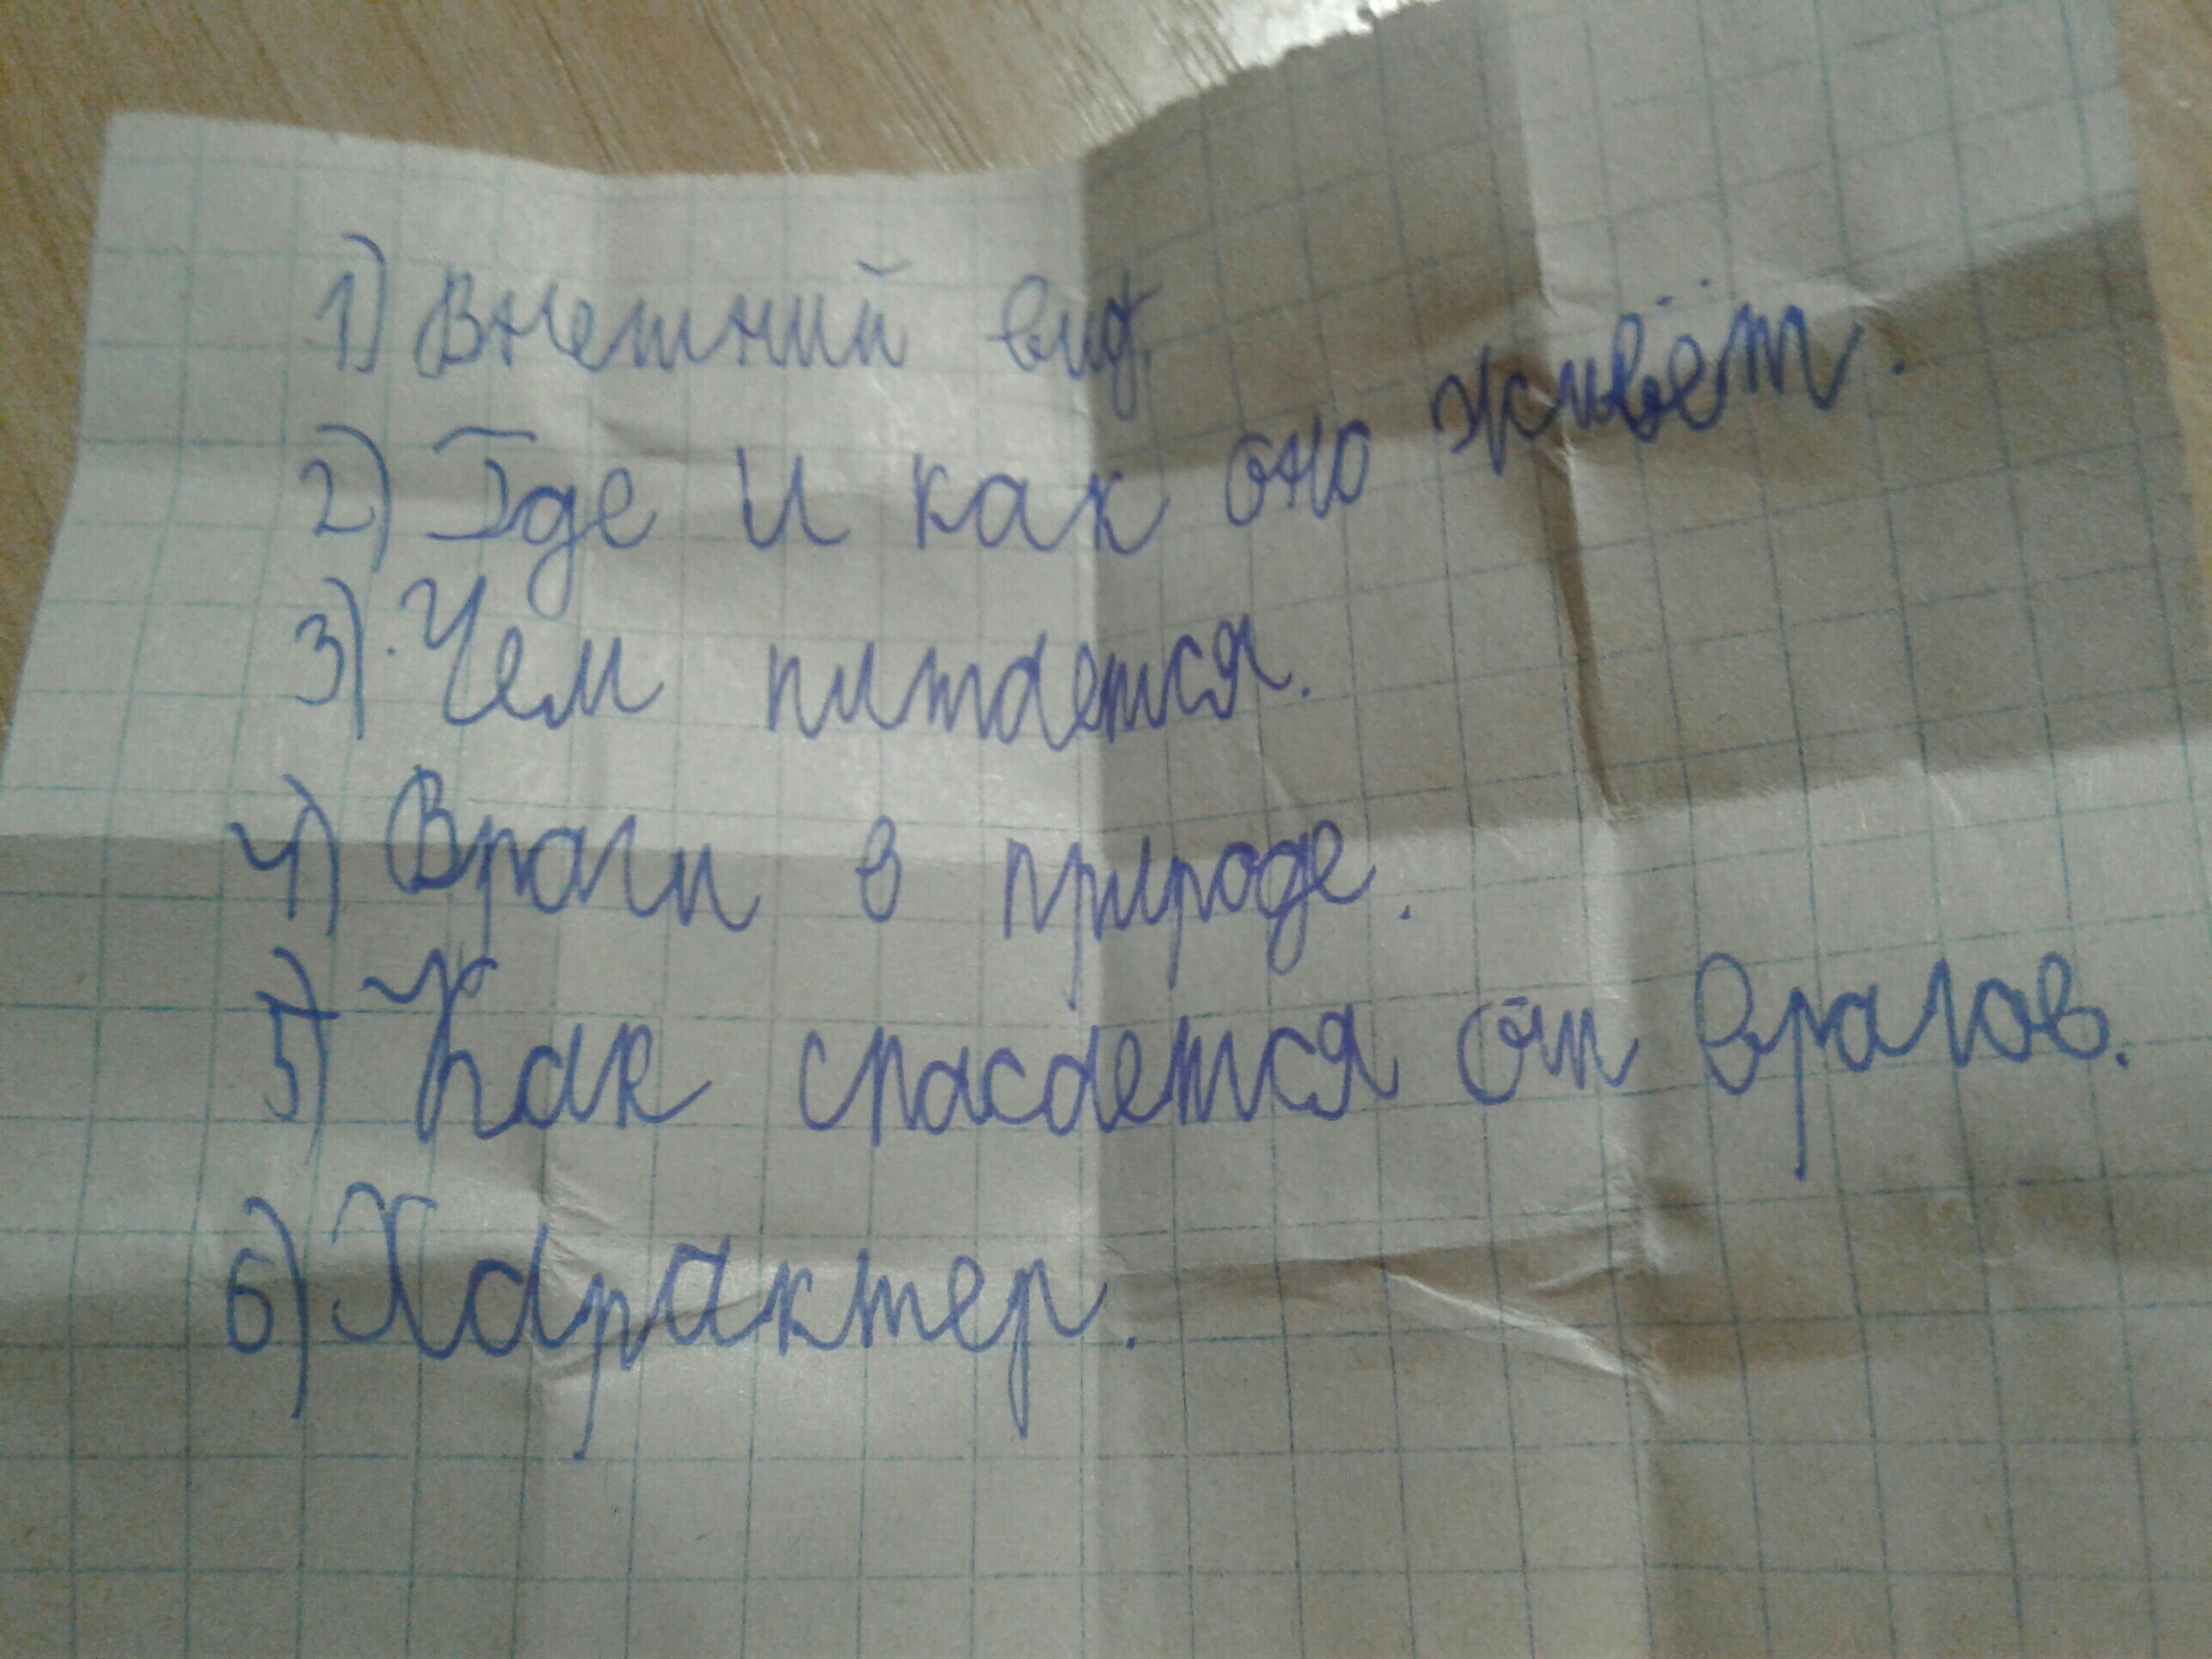 1) Внешний вид.
2) Где и как оно живёт.
3) Чем питается.
4) Враги в природе.
5) Как спасается от врагов.
6) Характер.